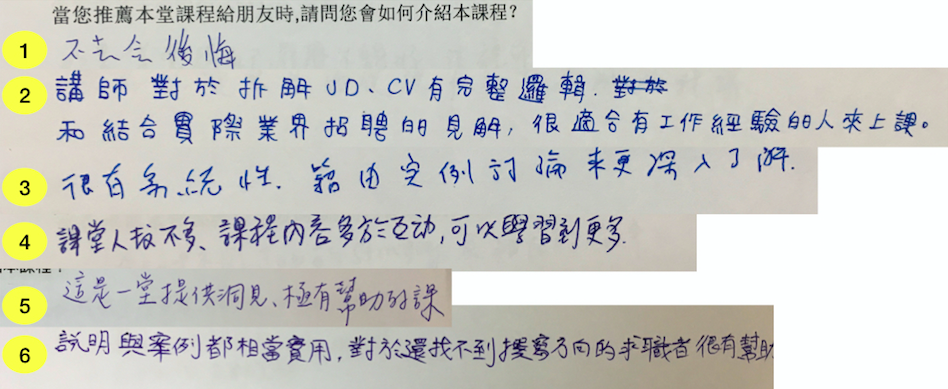 當您推薦本堂課程給朋友時,請問您會如何介紹本課程?
1 不去会後悔
2 講師對於拆解JD、CV有完整邏輯. 對於
和結合實際業界招聘的見解, 很適合有工作經驗的人來上課。
3 很有系統性. 藉由实例討論來更深入了解.
4 課堂人数不多、課程內容多於互动,可以學習到更多.
本課程?
5 這是一堂提供洞見、極有幫助的課
6 說明與案例都相當實用, 對於還找不到撰寫方向的求職者很有幫助